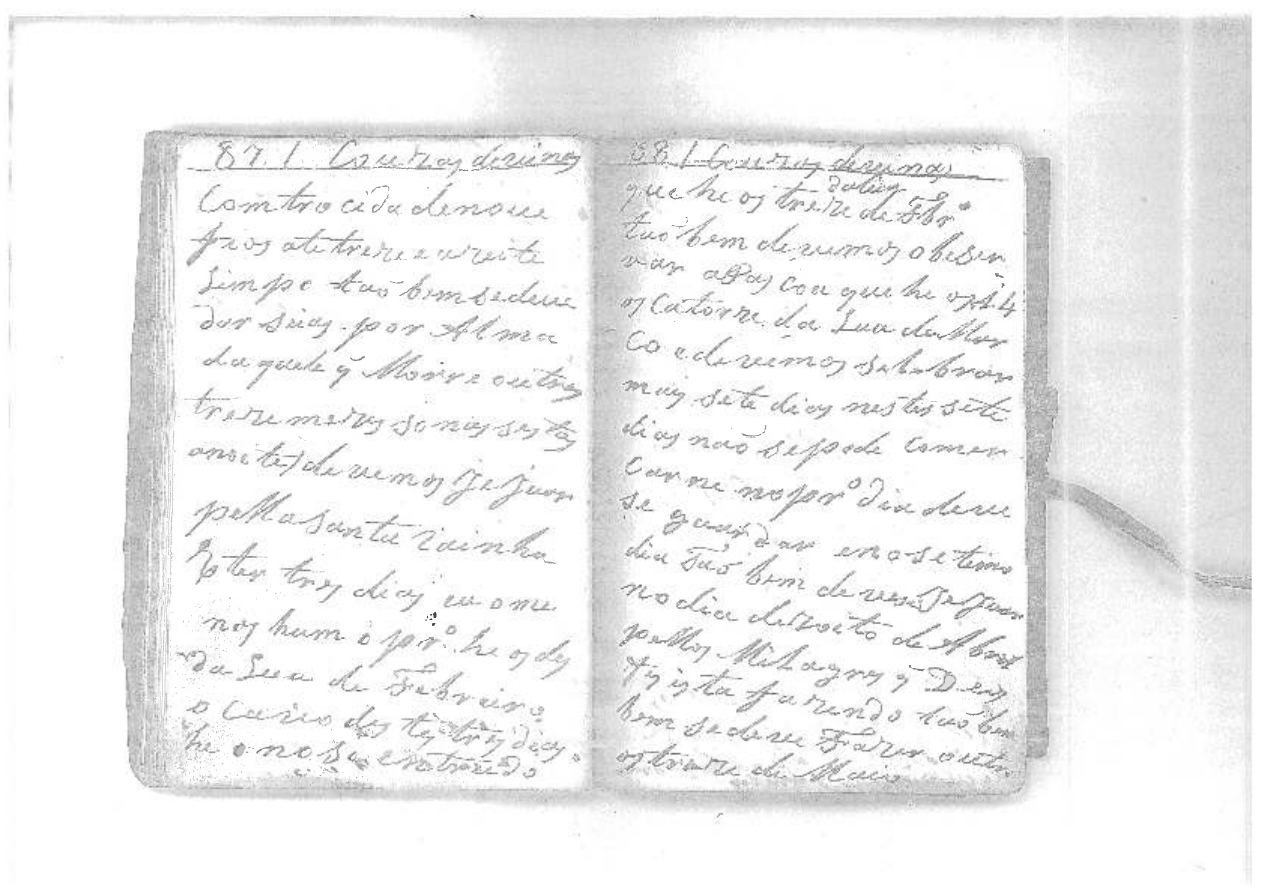 87. 1 Couzas devinas
Com trocida de noue
fios ate treze e azeite
Limpo taõ bem se deue
dar suas por Alma
daquele q̃ Morre outros
treze mezes so nas sestas
anoites) devemos JeJuar
pella santa Rainha
Ester tres dias ou ome
nos hum o prº. he os des
da Lua de Febreiro
o cabo destes tres dias
he o noso entrudo
88 1 Couzas devinas
que he os treze da lua de Fbrº
taõ bem devemos obeser
var a Pascoa que he os 14
os Catorze da Lua de Mar
Co e devemos selebrar
mais sete dias nestes sete
dias naõ se pode comer
Carne no prº dia deve
se guardar e no setimo
dia Taõ bem devese JeJuar
no dia dezoito de Abril
pellos Milagres q̃ Deus
esta fazendo taõ bem
bem se deve Fazer outr
os treze de Maio